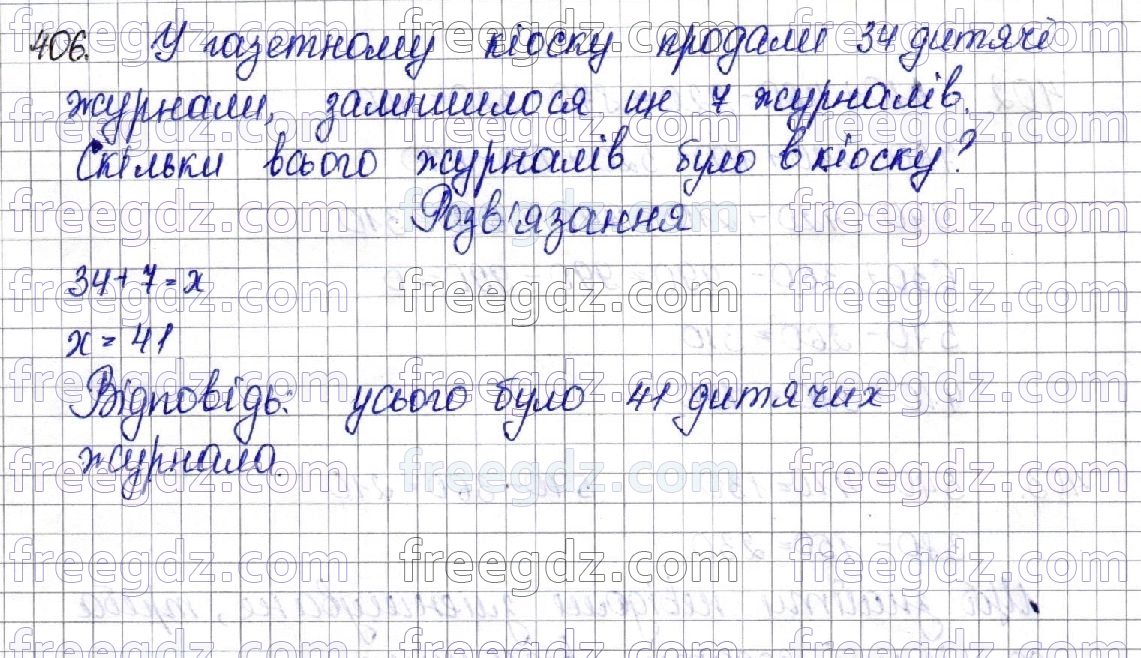 406. У газетному кіоску продали 34 дитячі
журнали, залишилося ще 7 журналів.
Скільки всього журналів було в кіоску?
Розв'язання
34+7=х
х = 41
Відповідь: усього було 41 дитячих
журнала.